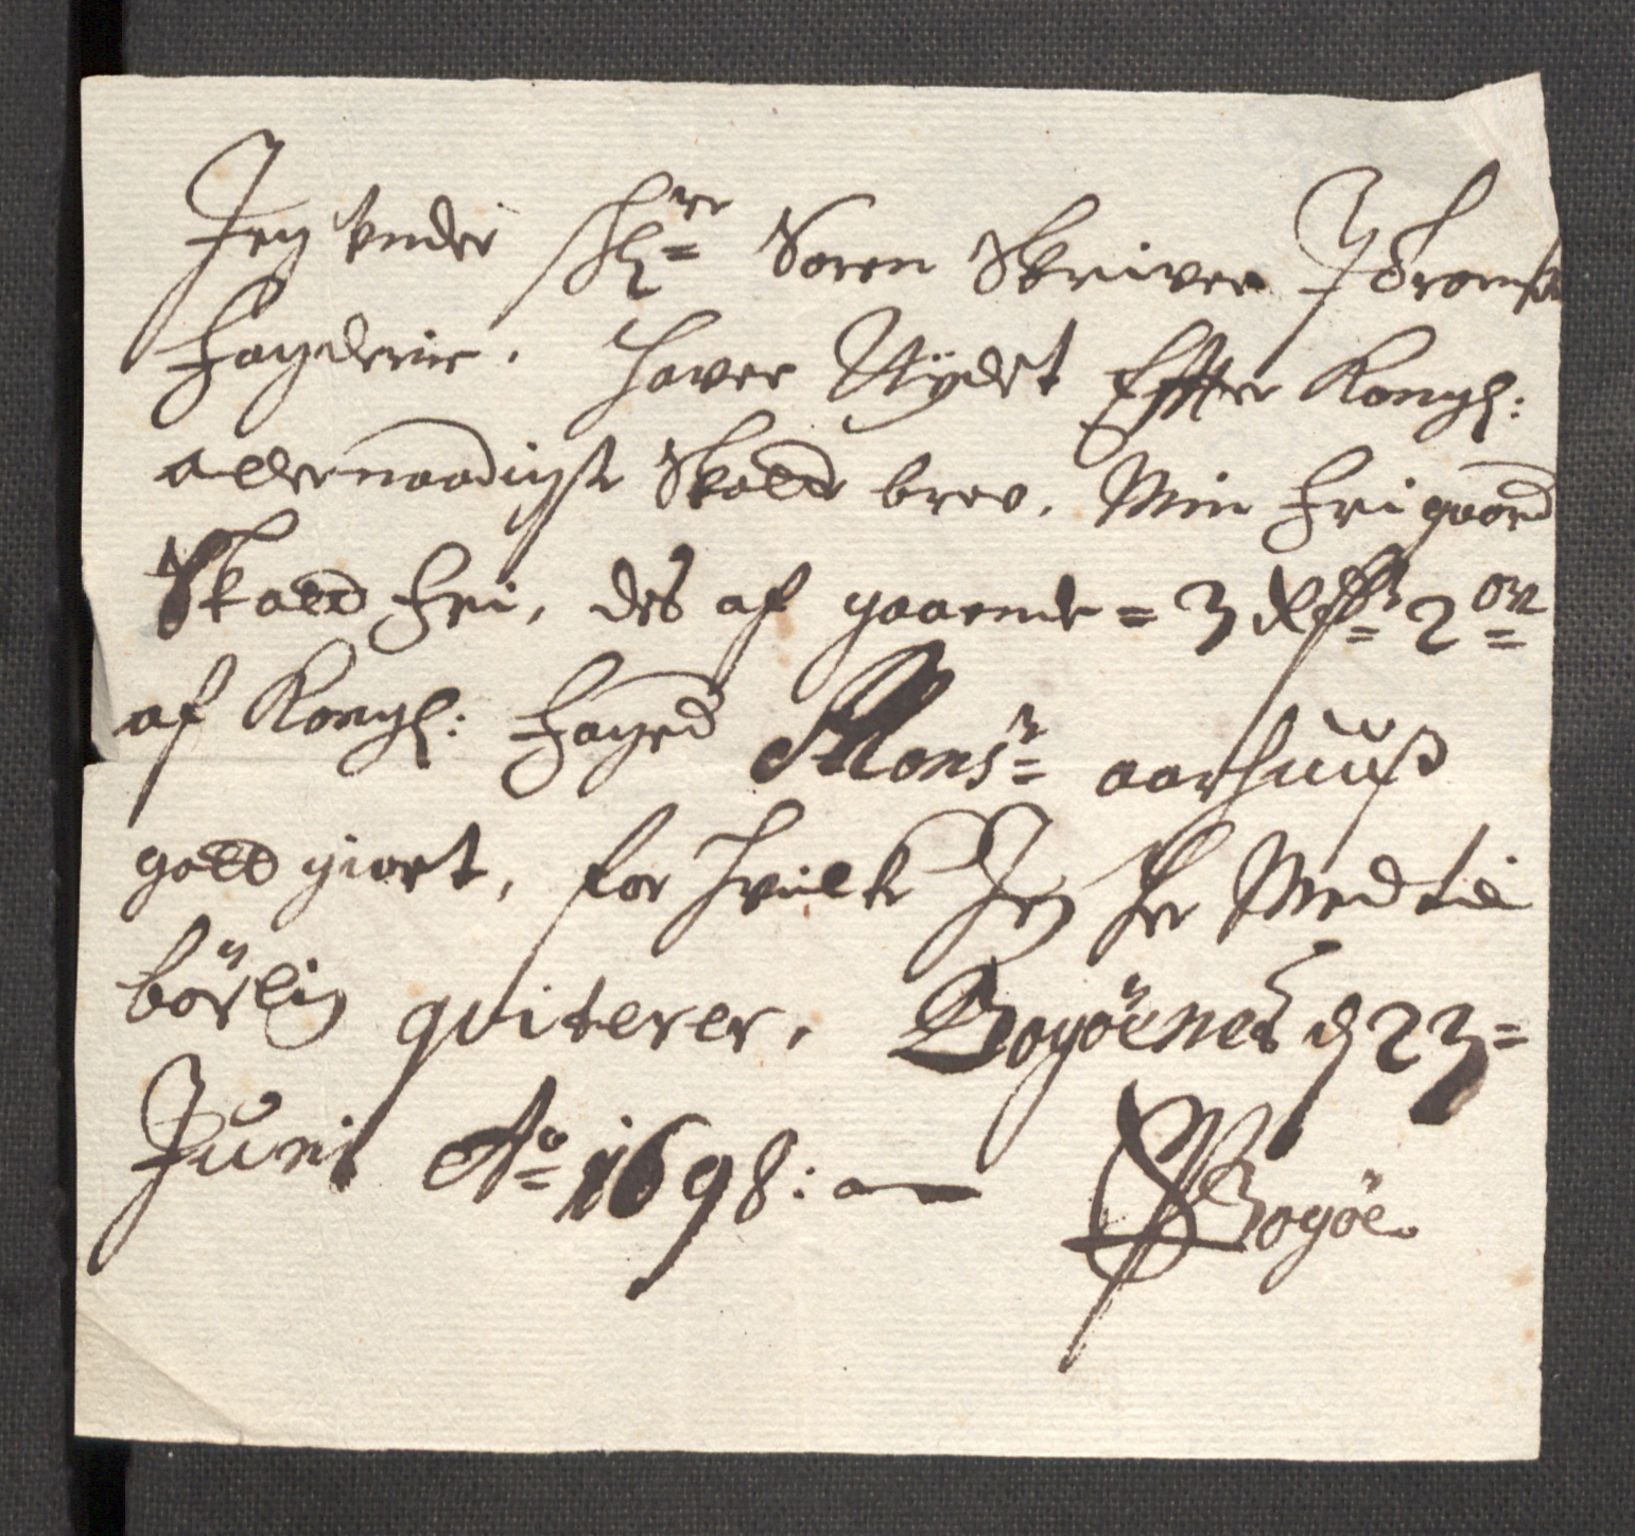 Jeg under Sl: Soren Skriver J Troms
fogderie. haver Nÿdet Effter Kongl:
allernaadigste Skatte brev. Min fri gaard
Skatte fri, des af gaaende = 3 Rdr 2 ort
af Kongl: foged Monsr aarhuuss
gott giort, for hvilke Jeg her Med til
börlig qviterer. Bogöenes d 23 =
Juni Ao 1698:
Bogöe